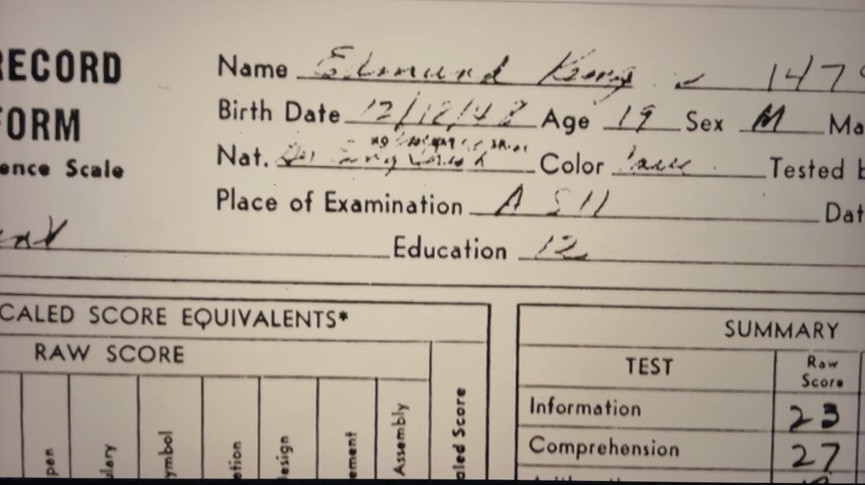 RECORD
FORM
ence Scale
Name Edmund 1479
Birth Date 12/18/48 Age 19 Sex M Ma
Nat. Color Tested b
Place of Examination A S H Dat
Education 12
CALED SCORE EQUIVALENTS*
RAW SCORE
SUMMARY
TEST
Raw Score
Information 23
Comprehension 27
pen
ulary
ymbol
etion
esign
ement
Assembly
aled Score